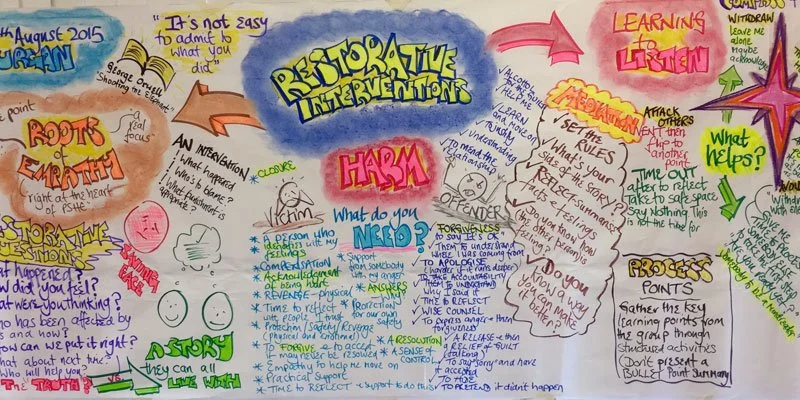 August 2015
"It's not easy
to admit to
what you
did"
George Orwell
"Shooting the Elephant"
RESTORATIVE
INTERVENTIONS
LEARNING
to
LISTEN
WITHDRAW
leave me
alone
Maybe
acknowledge
point
ROOTS
of
EMPATHY
right at the heart
of PSHE
a
real
focus
AN INTERVENTION
What happened
Who is to blame?
What punishment is
appropriate?
RESTORATIVE
QUESTIONS
What happened?
How did you feel?
What were you thinking?
Who has been affected by
this and how?
How can we put it right?
What about next time?
Who will help you?
THE TRUTH?
VS.
ANOTHER
FACE
A STORY
they can all
LIVE WITH
HARM
* CLOSURE
Victim
OFFENDER
What do you
NEED?
* A person who
identifies with my
feelings
* COMPENSATION
* Acknowledgement
of being hurt
* REVENGE - physical
* Time to reflect
* Protection/Safety/Revenge
(physical and emotional)
* To FORGIVE or to accept
it may never be resolved
* Empathy to help me move on
* Practical support
* TIME to REFLECT
* Support
from somebody
* My anger
* ANSWERS
WHY?
* PROTECTION
for our own
safety
* A RESOLUTION
* A SENSE OF
CONTROL
* support to do this
LEARN
and move on
Understanding
To mend the
relationship
FORGIVENESS
to say it's OK
THEM to understand
where I was coming from
TO APOLOGISE
(harder if it runs deeper)
TAKE ACCOUNTABILITY
THEM to UNDERSTAND
why I said it
TIME to REFLECT
WISE COUNSEL
To express anger & then
forgiveness
A RELEASE & then
a RELIEF of GUILT
(talking)
To say 'sorry' and have
it accepted
TO HIDE
TO PRETEND it didn't happen
MEDIATION
SET THE
RULES
What's your
side of the STORY?
REFLECT Summarise
facts & feelings
Do you know how
the other person is
feeling?
Do you
know a way
you can make
it better?
ATTACK
OTHERS
VENT then
flip to
another
point
TIME OUT
after to reflect
Take to safe space
Say Nothing This
is not the time for
What
helps?
PROCESS
POINTS
Gather the key
learning points from
the group through
structured activities
to present a
BULLET Point Summary